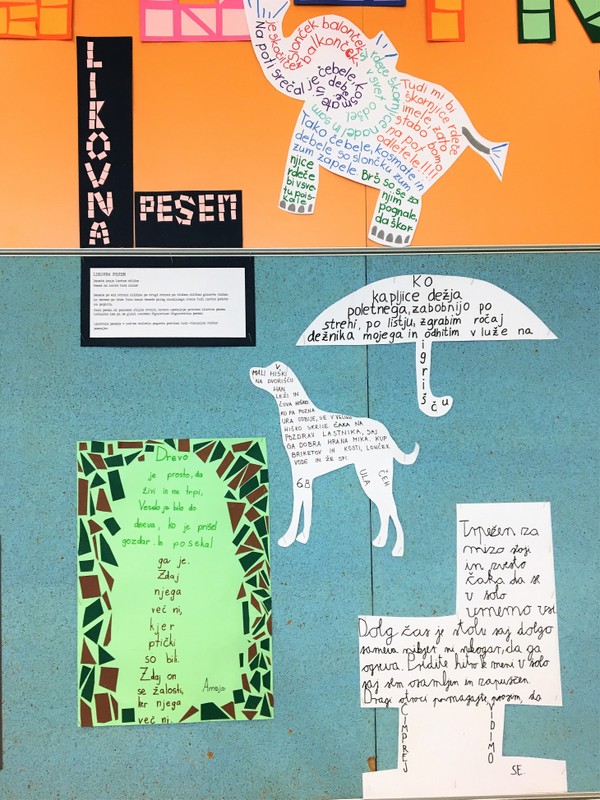 LIKOVNA
PESEM
Slonček balonček
je skočil čez balkonček.
Na poti srečal je čebele, kosmate in debele.
rdeče škornje
v svet odšel
Tudi mi bi
škornjice rdeče
imele, zato
na pot
odletele!!!!
Tako čebele, kosmate in
debele so slončku zum
zum zapele.
Brž so se za
njim pognale,
da škor-
njice
rdeče
bi v sve-
tu pois-
kale
LIKOVNA PESEM
KO
kapljice dežja
poletnega, zabobnijo po
strehi, po listju, zgrabim ročaj
dežnika mojega in odhitim v luže na
igrišču
V
MALI HIŠKI
NA DVORIŠČU
LEŽI IN
ČUVA HIŠKO
KO PA POZNA
URA ODBIJE, SE V VELIKO
HIŠKO SKRIJE ČAKA NA
POZDRAV LASTNIKA, SAJ
GA DOBRA HRANA MIKA. KUP
BRIKETOV IN KOSTI, LONČEK
VODE IN ŽE SPI.
6.B
ULA
ČEH
Drevo
je prosto, da
živi in ne trpi,
Veselo je bilo do
dneva, ko je prišel
gozdar in posekal
ga je.
Zdaj
njega
več ni,
kjer
ptički
so bili.
Zdaj on
se žalosti,
ker njega
več ni.
Trpežen za
mizo stoji
in zvesto
čaka da se
v šolo
vrnemo vsi
Dolg čas je stolu saj dolgo
sameva nikjer ni nikogar, da ga
ogreva. Pridite hitro k meni v šolo
saj sem osamljen in zapuščen
Dragi otroci pomagajte prosim, da
ČIMPREJ
VIDIMO
SE.